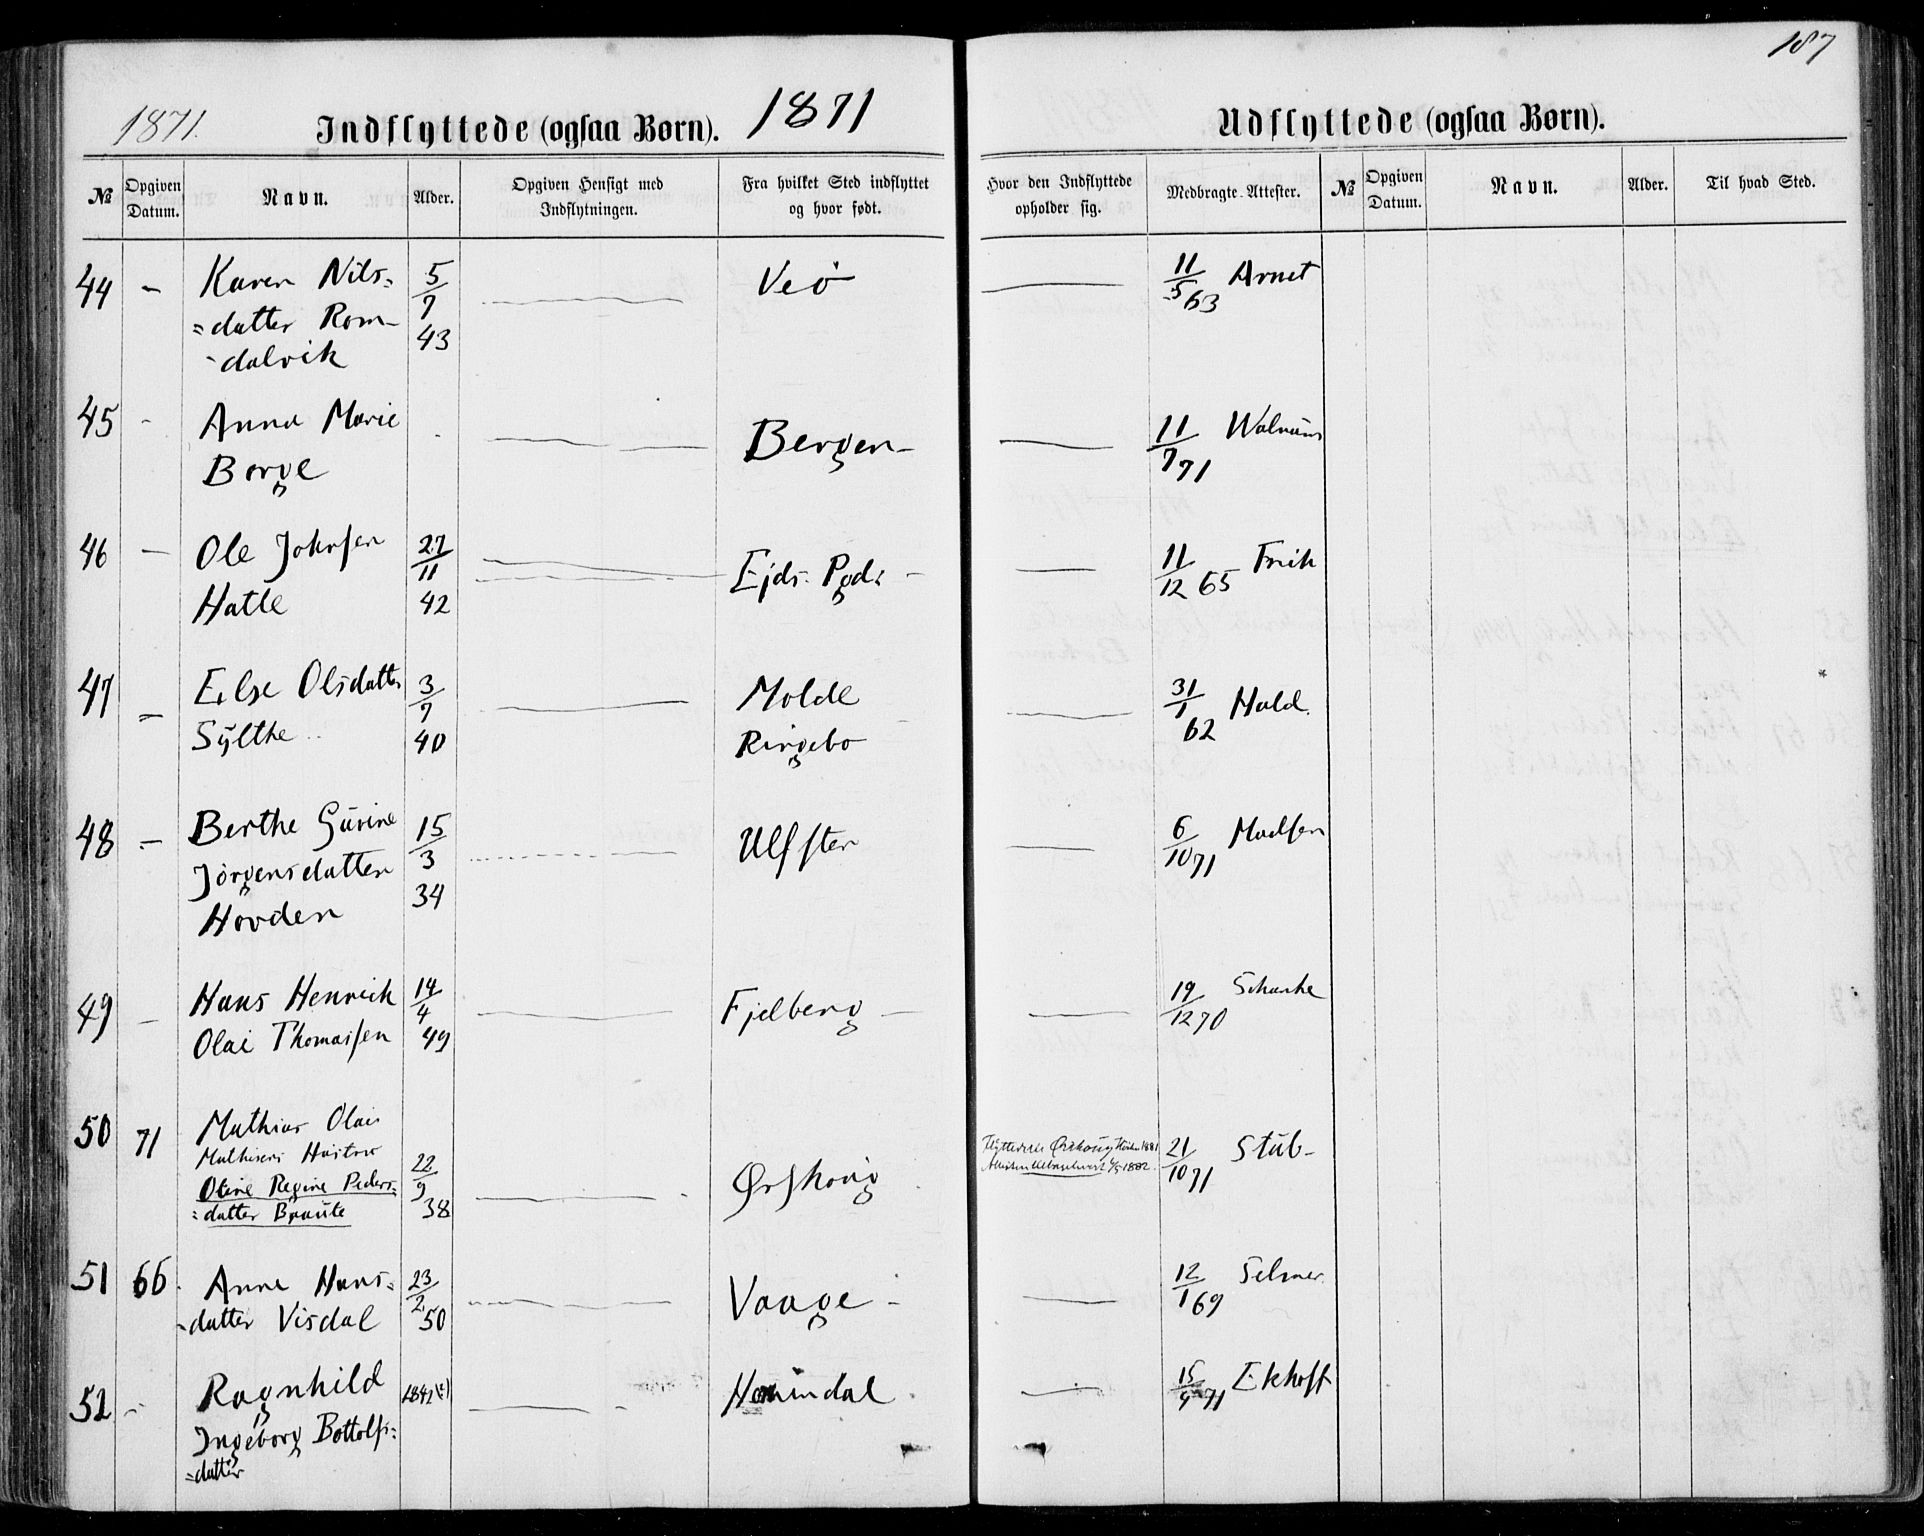 187
1871.
Indflyttede (ogsaa Børn).
1871
Udflyttede (ogsaa Børn).
№ Opgiven Datum. Navn. Alder. Opgiven Hensigt med Indflytningen. Fra hvilket Sted indflyttet og hvor født. Hvor den Indflyttede opholder sig. Medbragte Attester. № Opgiven Datum. Navn. Alder. Til hvad Sted.
44 – Karen Nils= 5/7 Veø 11/5 63 Arnet
=datter Rom- 43
-dalvik
45 - Anna Marie Bergen 11/7 71
Borge
46 – Ole Johnsen 27/11 Ejds. Pgd: 11/12 65 Frich
Hatle 42
47 – Else Olsdatter 3/7 Molde 31/1 62 Hald.
Sylthe 40 Ringebo
48 – Berthe Gurine 15/3 Ulfsten 6/10 71 Madsen
Jörgensdatter 34
Hovden
49 – Hans Henrick 14/4 Fjelberg 19/12 70 Schanke
Olai Thomassen 49
50 71 Mathias Olai Ørskoug 21/10 71 Stub
Mathisens Hustru 22/9
Oline Regine Peders=
=datter Braute 38
51 66. Anne Hans= 23/2 Vaage 12/1 69 Selmer
-datter Visdal 50
52 - Ragnhild 1841(?) Hornindal 15/9 71 Ekhoff
Ingeborg Bottolfs=
=datter